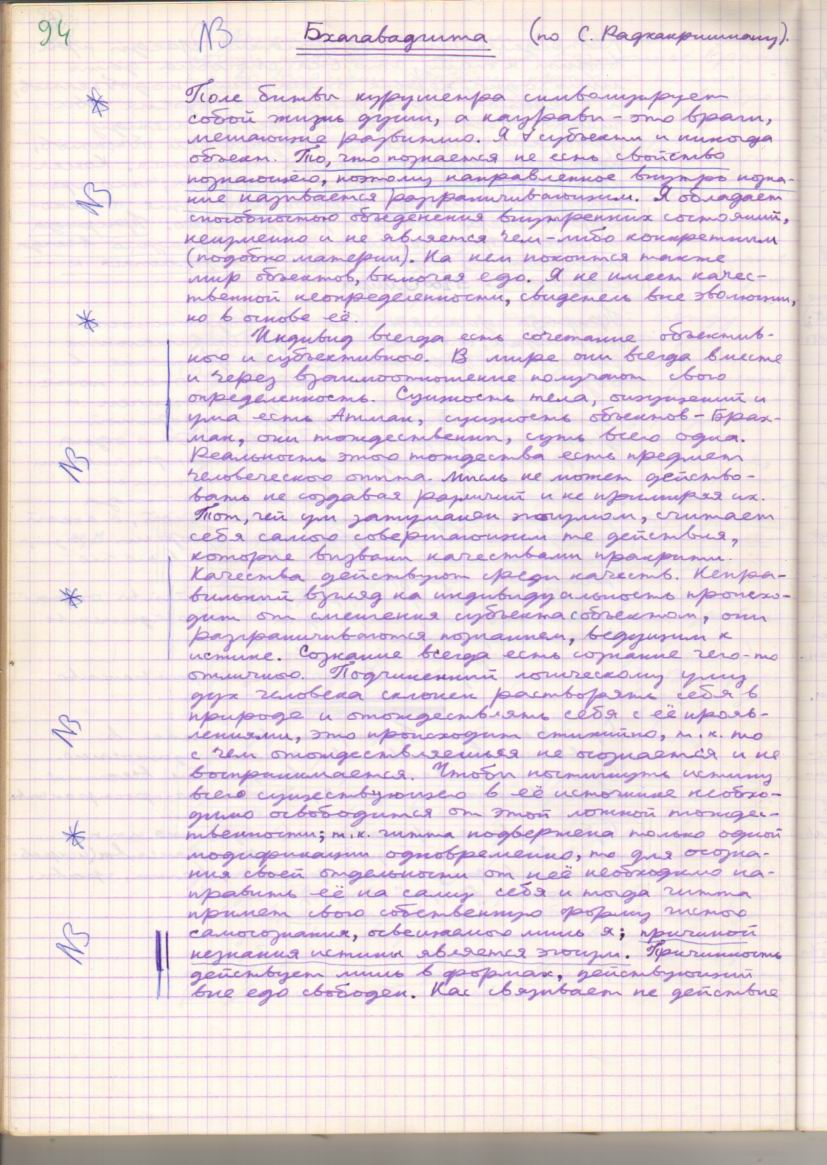 94 NB Бхагавадгита (по С. Радхакришнану).
Поле битвы курукшетра символизирует
собой жизнь души, а кауравы - это враги,
мешающие развитию. Я субъект и никогда
объект. То, что познается не есть свойство
познающего, поэтому направленное внутрь позна-
ние называется разграничивающим. Я обладает
способностью объединения внутренних состояний,
неизменно и не является чем-либо конкретным
(подобно материи). На нем покоится также
мир объектов, включая эго. Я не имеет качес-
твенной неопределенности, свидетель вне эволюции,
но в основе её.
Индивид всегда есть сочетание объектив-
ного и субъективного. В мире они всегда вместе
и через взаимоотношение получают свою
определенность. Сущность тела, ощущений и
ума есть Атман, сущность объектов - Брах-
ман, они тождественны, суть всего одна.
Реальность этого тождества есть предмет
человеческого опыта. Мысль не может действо-
вать не создавая различий и не примиряя их.
Тот, чей ум затуманен эгоизмом, считает
себя самого совершающим те действия,
которые вызваны качествами пракрити.
Качества действуют среди качеств. Непра-
вильный взгляд на индивидуальность происхо-
дит от смешения субъекта с объектом, они
разграничиваются познанием, ведущим к
истине. Сознание всегда есть сознание чего-то
отличного. Подчиненный логическому уму
дух человека склонен растворять себя в
природе и отождествлять себя с её прояв-
лениями, это происходит стихийно, т.к. то
с чем отождествляешься не осознается и не
воспринимается. Чтобы постигнуть истину
всего существующего в её источнике необхо-
димо освободится от этой ложной тождес-
твенности; т.к. читта подвержена только одной
модификации одновременно, то для осозна-
ния своей отдельности от неё необходимо на-
править её на саму себя и тогда читта
примет свою собственную форму чистого
самосознания, освещаемого лишь я; причиной
незнания истины является эгоизм. Причинность
действует лишь в формах, действующий
вне эго свободен. Нас связывает не действие